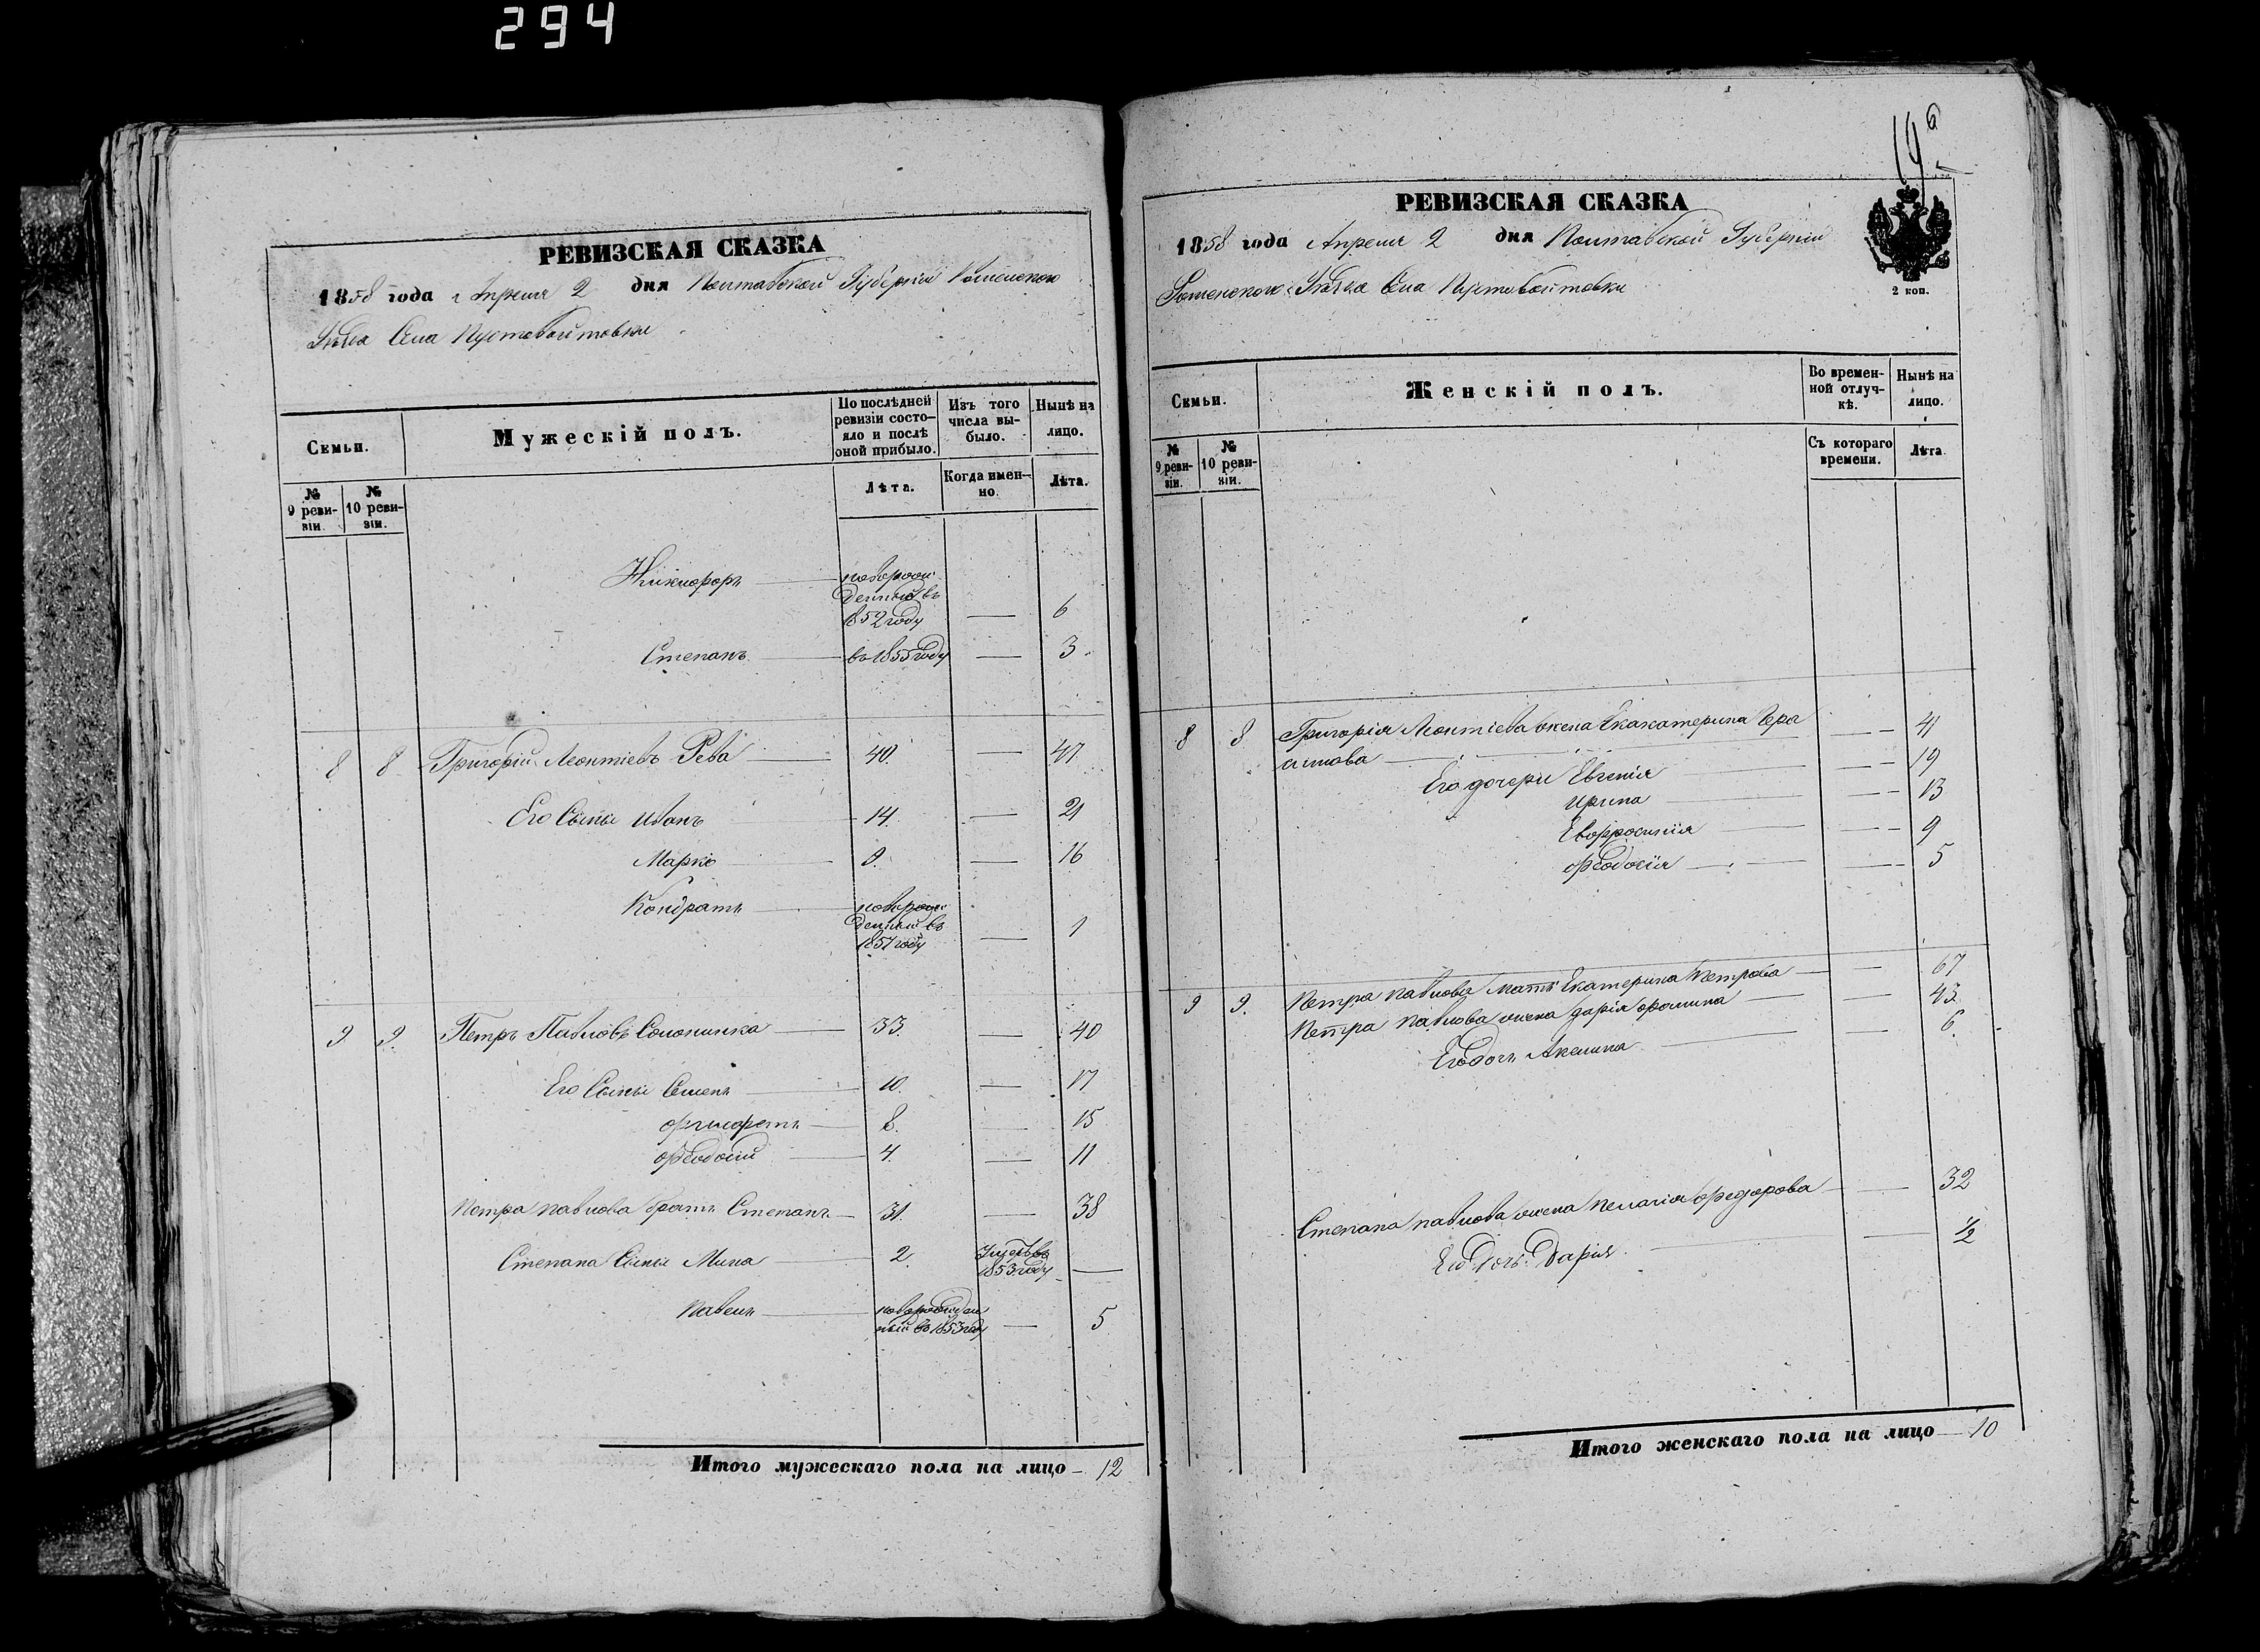 294
РЕВИЗСКАЯ СКАЗКА
1858 года Апреля 2 дня Полтавской Губерніи Роменского
Уѣзда Села Пустовойтовки
Семьи.
Мужескій полъ.
По послѣдней ревизіи состояло и послѣ оной прибыло.
Изъ того числа выбыло.
Нынѣ на лицо.
№ 9 ревизіи.
№ 10 ревизіи.
Лѣта.
Когда именно.
Лѣта.
Никифоръ новорожденный въ 1852 году — 6
Степанъ въ 1855 году — 3
8 8 Григорій Леонтіевъ Рева 40. — 47
Его Сыны Иванъ 14. — 21
Марко 9. — 16
Кондратъ новорожденный въ 1857 году — 1
9 9. Петръ Павловъ Солонинка 33. — 40
Его Сыны Семенъ 10. — 17
8. — 15
Феодосій 4. — 11
Петра Павлова братъ Степанъ 31. — 38
Степана Сыны Мина 2. Умеръ въ 1853 году —
Павелъ новорожденный въ 1853 году — 5
Итого мужескаго пола на лицо — 12
19
РЕВИЗСКАЯ СКАЗКА
1858 года Апреля 2 дня Полтавской Губерніи
Роменского Уѣзда Села Пустовойтовки
2 коп.
Семьи.
Женскій полъ.
Во временной отлучкѣ.
Нынѣ на лицо.
№ 9 ревизіи.
№ 10 ревизіи.
Съ котораго времени.
Лѣта.
8 8 Григорія Леонтіева жена Екакатерина Гера
симова — 41
Его дочери Евгенія — 19
Ирина — 13
Евфросинія — 9
Феодосія — 5
9 9. Петра Павлова мать Екатерина Петрова — 67
Петра Павлова жена Дарія Фомина — 43
Его дочь Акелина — 6.
Степана Павлова жена Пелагія Федорова — 32
Его дочь Дарія — 1/2
Итого женскаго пола на лицо — 10